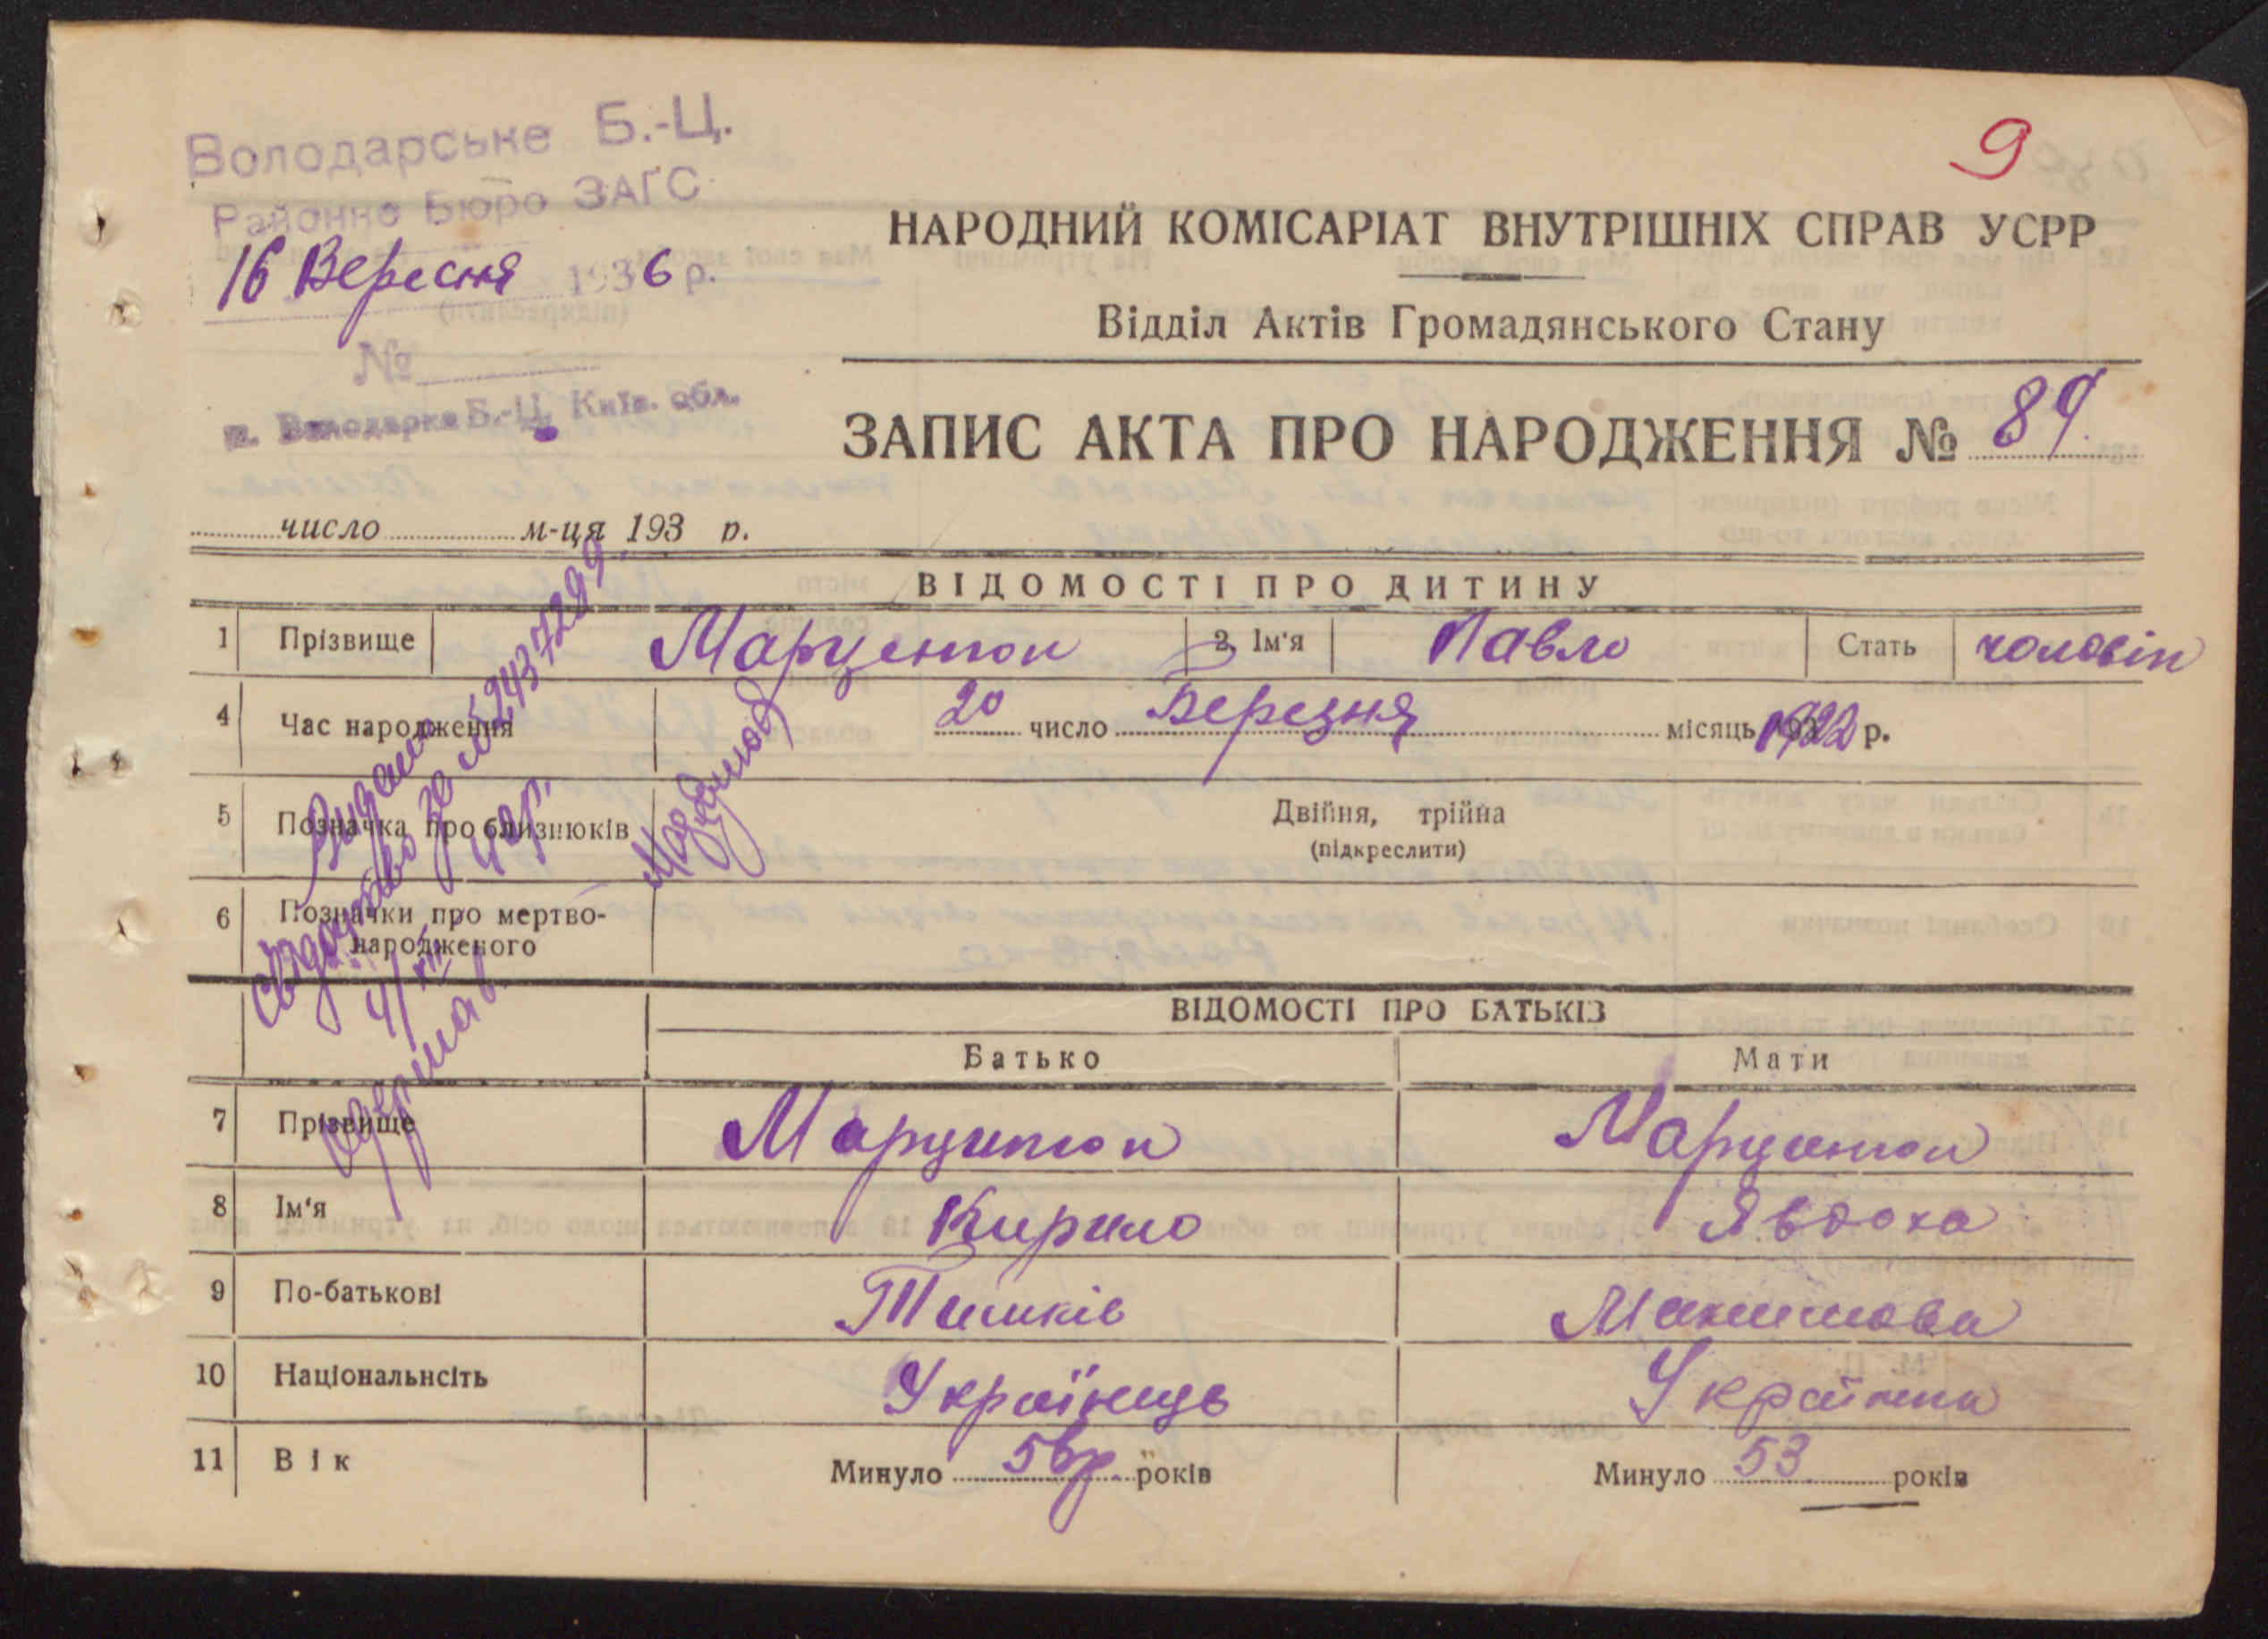 9
Володарське Б.-Ц.
Районне Бюро ЗАГС
16 Вересня 1936 р.
№
м. Володарка Б.-Ц. Київ. обл.
НАРОДНИЙ КОМІСАРІАТ ВНУТРІШНІХ СПРАВ УСРР
Відділ Актів Громадянського Стану
ЗАПИС АКТА ПРО НАРОДЖЕННЯ № 89
число м-ця 193 р.
ВІДОМОСТІ ПРО ДИТИНУ
1 Прізвище Марценюк 2. Ім'я Павло Стать чоловік
4 Час народження 20 число Березня місяць 1922 р.
5 Позначка про близнюків Двійня, трійна
(підкреслити)
6 Позначки про мертво-
народженого
Видано
за № 2437299
ВІДОМОСТІ ПРО БАТЬКІВ
Батько Мати
7 Прізвище Марценюк Марценюк
8 Ім'я Кирило Явдоха
9 По-батькові Тишків Макимова
10 Національнсіть Українець Українка
11 Вік Минуло років Минуло 53 років